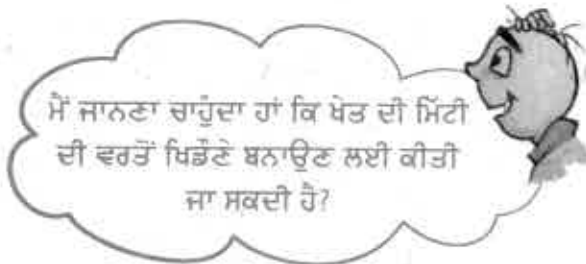 ਮੈਂ ਜਾਨਣਾ ਚਾਹੁੰਦਾ ਹਾਂ ਕਿ ਖੇਤ ਦੀ ਮਿੱਟੀ
ਦੀ ਵਰਤੋਂ ਖਿਡੌਣੇ ਬਨਾਉਣ ਲਈ ਕੀਤੀ
ਜਾ ਸਕਦੀ ਹੈ?